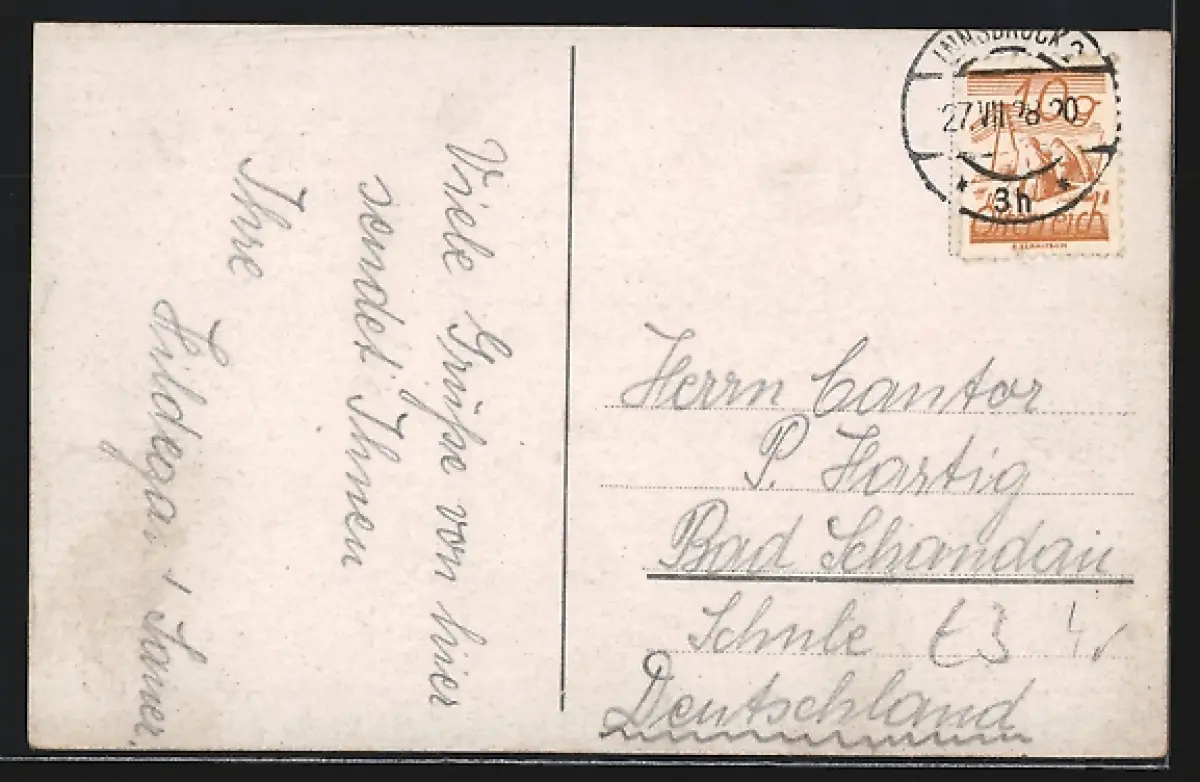 Viele Grüße von hier
sendet Ihnen
Ihre
INNSBRUCK 2
27.VII 28 20
* 3h *
10 g
Österreich
Herrn Cantor
P. Hartig
Bad Schandau
Schule t3
Deutschland